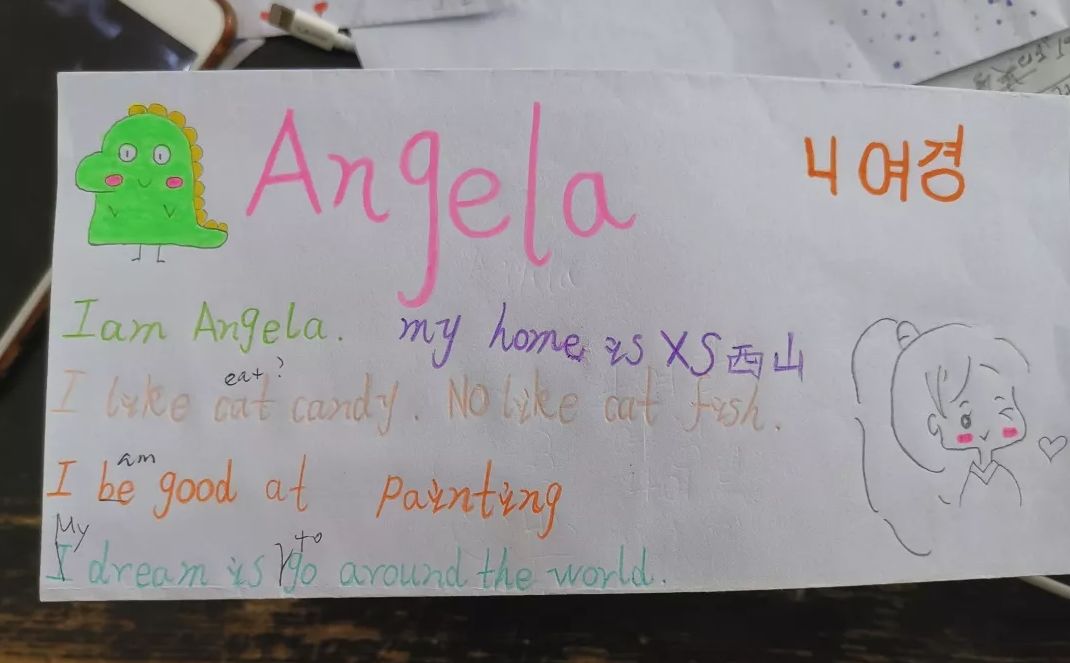 Angela
니여경
I am Angela. my home is XS西山
eat?
I like cat candy. No like cat fish.
am
I be good at painting
My to
I dream is go around the world.